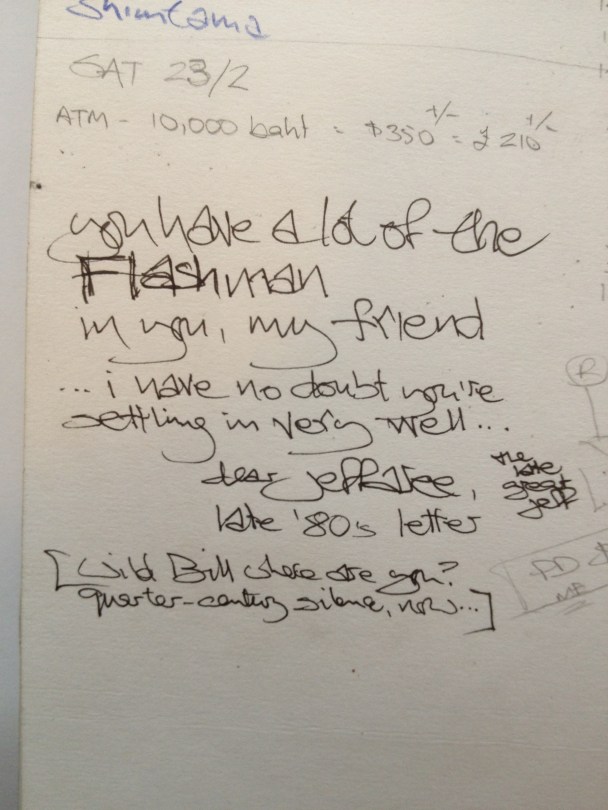 Shimtama
SAT 23/2
ATM - 10,000 baht = $350 +/- = £ 210 +/-
you have a lot of the
Flashman
in you, my friend
... i have no doubt you're
settling in very well...
dear Jeffaree, the late great Jeff
late '80s letter
[Wild Bill where are you?
quarter-century silence, now...]
R